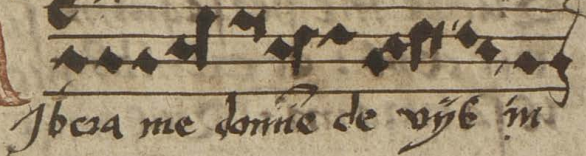 Ibera me domīe de vijs in